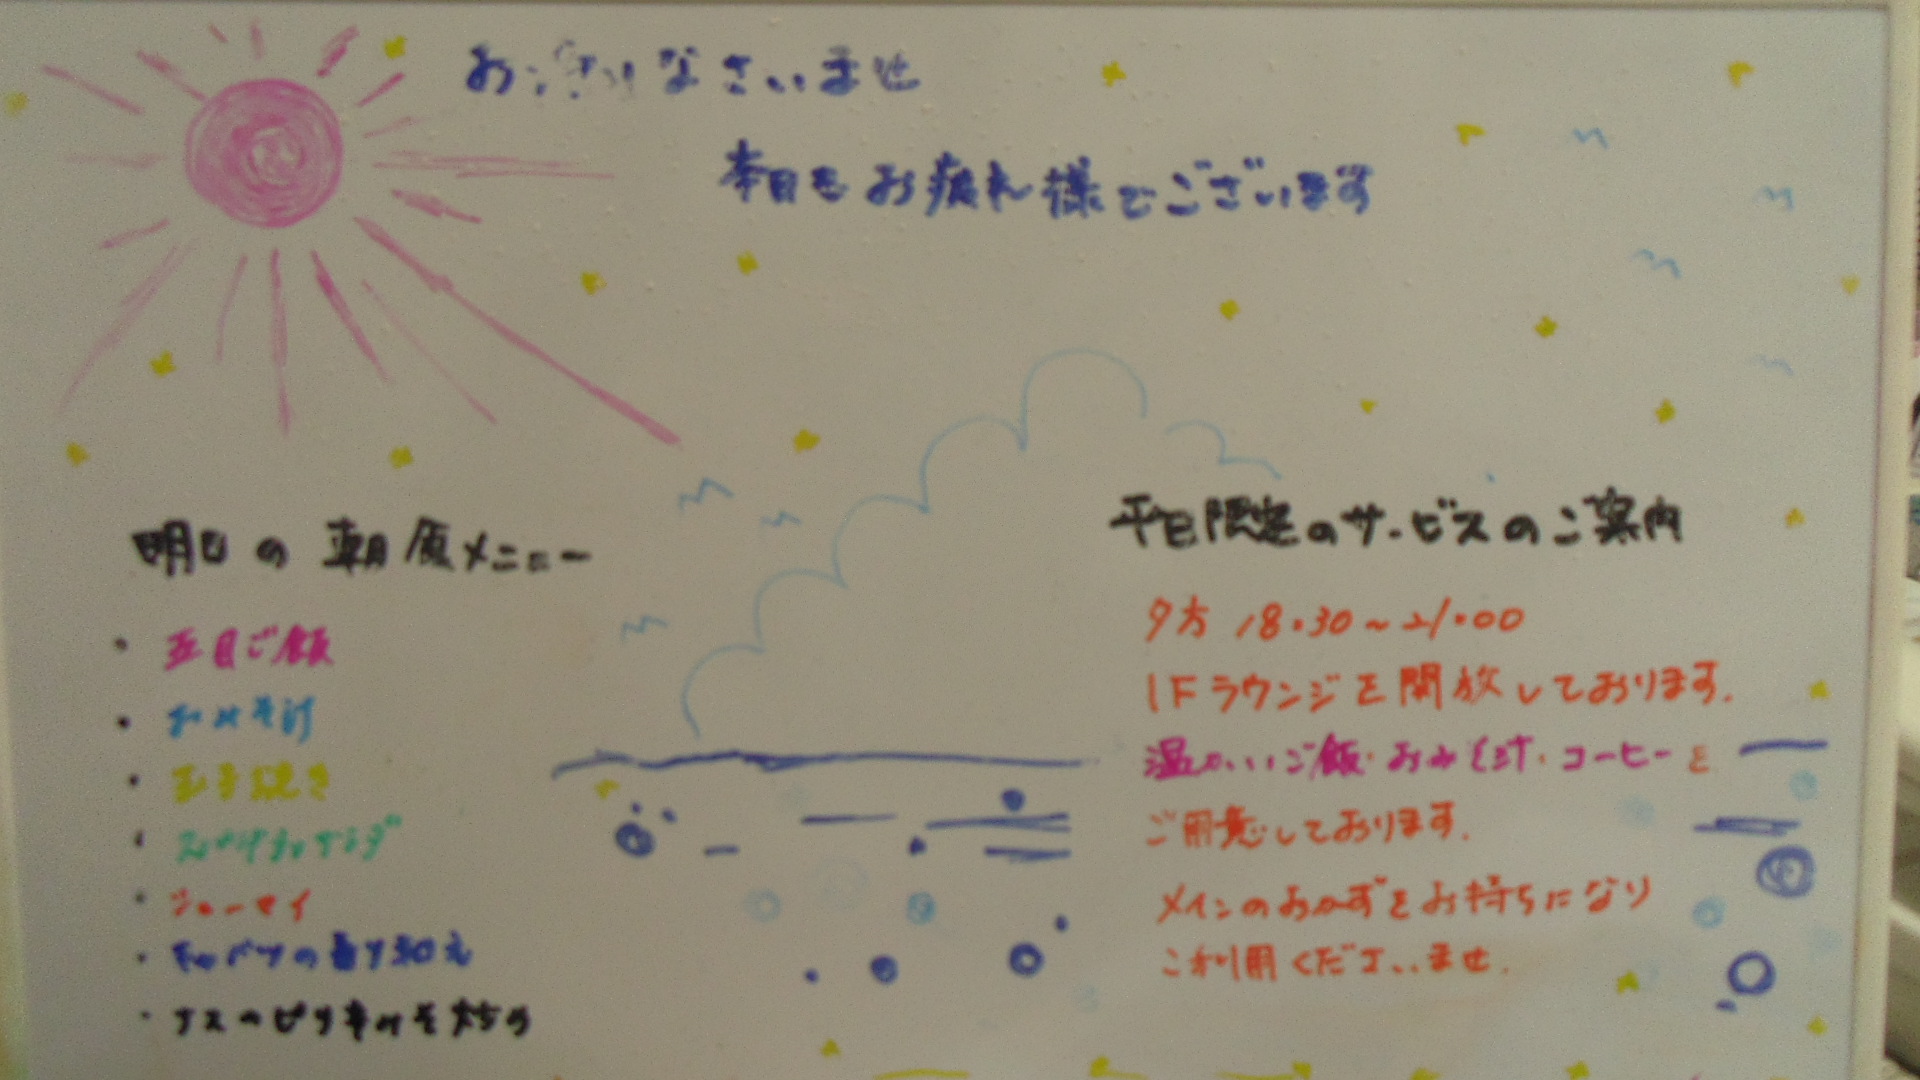 おかえりなさいませ
本日もお疲れ様でございます
明日の朝食メニュー
・五目ご飯
・おみそ汁
・玉子焼き
・スパゲティサラダ
・ソーセイ
・キャベツの香り和え
・ナスのピリ辛みそ炒め
平日限定のサービスのご案内
夕方 18:30～21:00
1Fラウンジを開放しております。
温かいご飯・おみそ汁・コーヒーを
ご用意しております。
メインのおかずをお持ちになり
ご利用くださいませ。